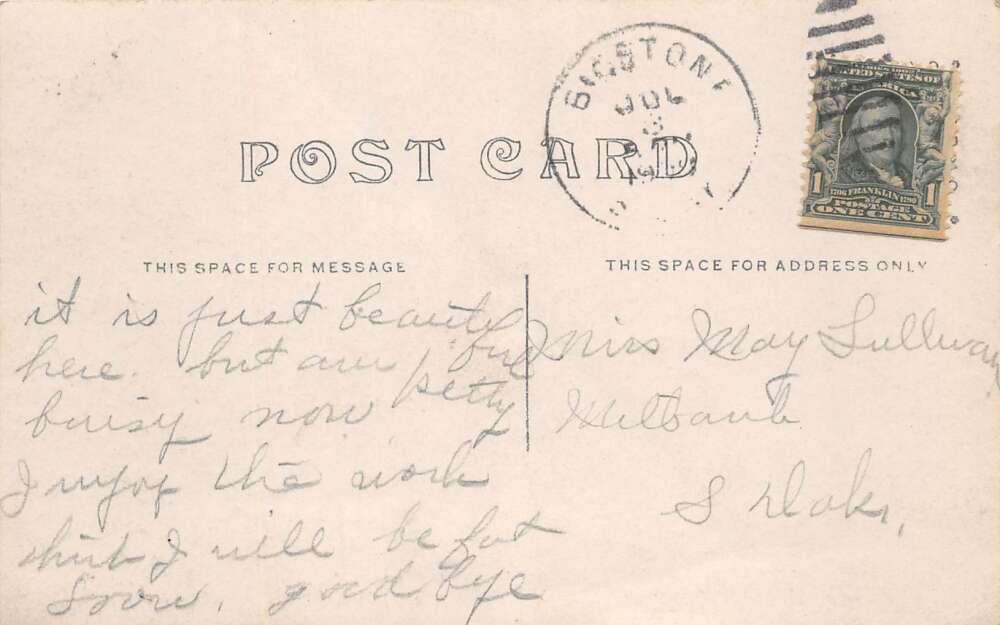 POST CARD
BIGSTONE
JUL
3
SERIES 1902
UNITED STATES OF
AMERICA
1 1
1706 FRANKLIN 1790
POSTAGE
ONE CENT
THIS SPACE FOR MESSAGE
it is just beautyful
here. but am petty
buisy now
I enjoy the work
think I will be fat
Soon, good bye
THIS SPACE FOR ADDRESS ONLY
Miss May Sullivan
Milbank
S Dak,